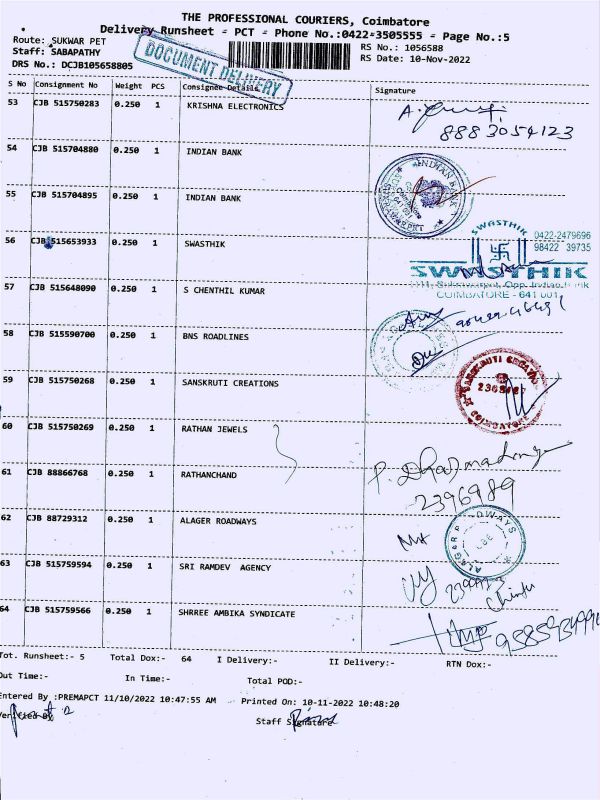 THE PROFESSIONAL COURIERS, Coimbatore
Delivery Runsheet - PCT - Phone No.:0422-3505555 - Page No.:5
Route: SUKWAR PET
Staff: SABAPATHY
DRS No.: DCJB105658805
DOCUMENT DELIVERY
RS No.: 1056588
RS Date: 10-Nov-2022
S No Consignment No Weight PCS Consignee Details Signature
53 CJB 515750283 0.250 1 KRISHNA ELECTRONICS
8883054123
54 CJB 515704880 0.250 1 INDIAN BANK
INDIAN BANK
55 CJB 515704895 0.250 1 INDIAN BANK
56 CJB 515653933 0.250 1 SWASTHIK
SWASTHIK
0422-2479696
98422 39735
SWASTHIK
Opp. Indian Bank
COIMBATORE - 641 001.
57 CJB 515648090 0.250 1 S CHENTHIL KUMAR
58 CJB 515590700 0.250 1 BNS ROADLINES
59 CJB 515750268 0.250 1 SANSKRUTI CREATIONS
SANSKRUTI CREATIONS
COIMBATORE
60 CJB 515750269 0.250 1 RATHAN JEWELS
61 CJB 88866768 0.250 1 RATHANCHAND
2396989
62 CJB 88729312 0.250 1 ALAGER ROADWAYS
63 CJB 515759594 0.250 1 SRI RAMDEV AGENCY
64 CJB 515759566 0.250 1 SHRREE AMBIKA SYNDICATE
Tot. Runsheet:- 5 Total Dox:- 64 I Delivery:- II Delivery:- RTN Dox:-
Out Time:- In Time:- Total POD:-
Entered By :PREMAPCT 11/10/2022 10:47:55 AM Printed On: 10-11-2022 10:48:20
Verified By
Staff Signature